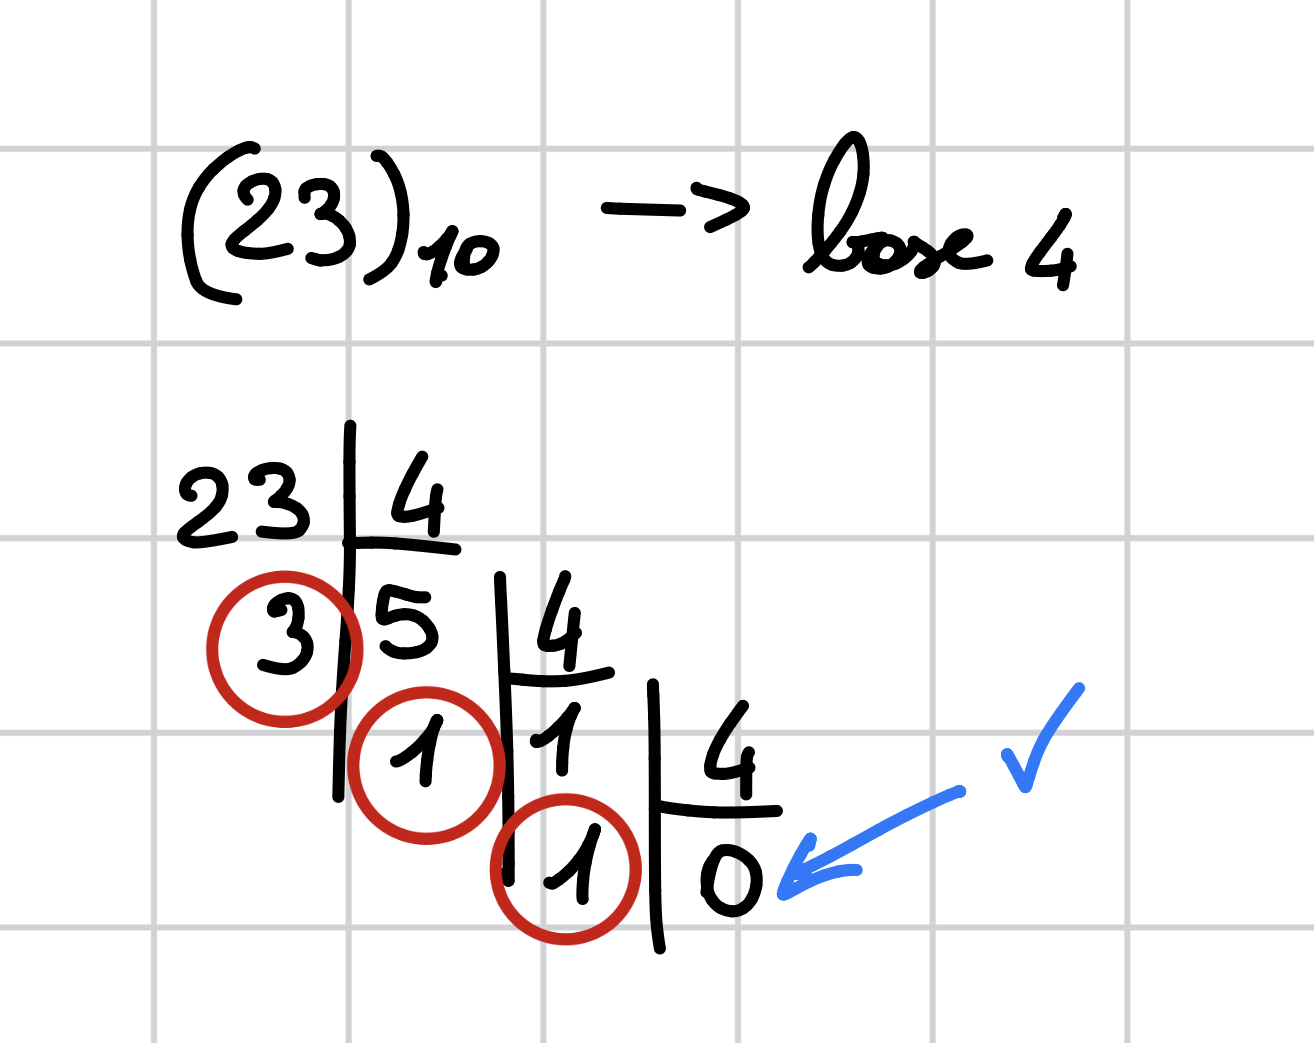 (23)₁₀ -> base 4
23 4
3 5 4
1 1 4
1 0